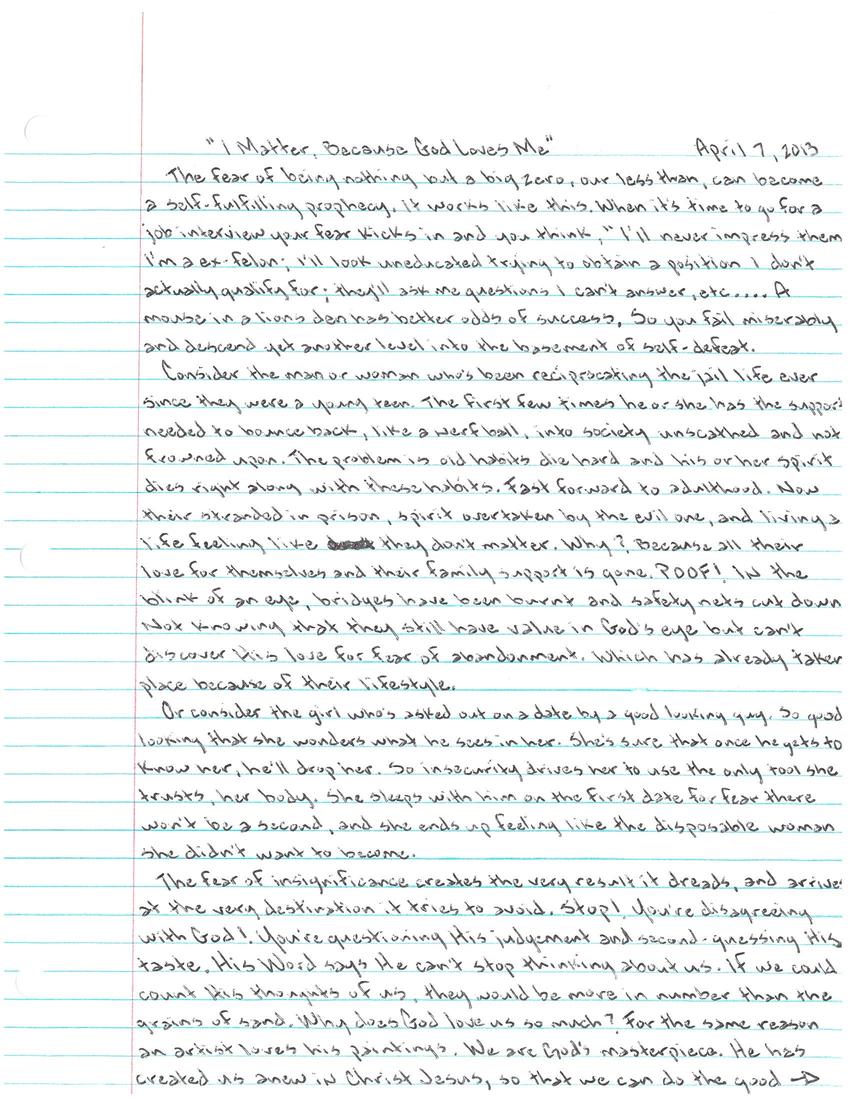 "I Matter, Because God Loves Me" April 7, 2013
The fear of being nothing but a big zero, our less than, can become
a self-fulfilling prophecy. It works like this. When it's time to go for a
job interview your fear kicks in and you think, "I'll never impress them
I'm a ex-felon; I'll look uneducated trying to obtain a position I don't
actually qualify for; they'll ask me questions I can't answer, etc.... A
mouse in a lions den has better odds of success. So you fail miserably
and descend yet another level into the basement of self-defeat.
Consider the man or woman who's been reciprocating the jail life ever
since they were a young teen. The first few times he or she has the support
needed to bounce back, like a nerf ball, into society unscathed and not
frowned upon. The problem is old habits die hard and his or her spirit
dies right along with these habits. Fast forward to adulthood. Now
their stranded in prison, spirit overtaken by the evil one, and living a
life feeling like they don't matter. Why? Because all their
love for themselves and their family support is gone. POOF! IN the
blink of an eye, bridges have been burnt and safety nets cut down
Not knowing that they still have value in God's eye but can't
discover His love for fear of abandonment. Which has already taken
place because of their lifestyle.
Or consider the girl who's asked out on a date by a good looking guy. So good
looking that she wonders what he sees in her. She's sure that once he gets to
know her, he'll drop her. So insecurity drives her to use the only tool she
trusts, her body. She sleeps with him on the first date for fear there
won't be a second, and she ends up feeling like the disposable woman
she didn't want to become.
The fear of insignificance creates the very result it dreads, and arrives
at the very destination it tries to avoid. Stop! You're disagreeing
with God! You're questioning His judgement and second-guessing His
taste. His Word says He can't stop thinking about us. If we could
count His thoughts of us, they would be more in number than the
grains of sand. Why does God love us so much? For the same reason
an artist loves his paintings. We are God's masterpiece. He has
created us anew in Christ Jesus, so that we can do the good →